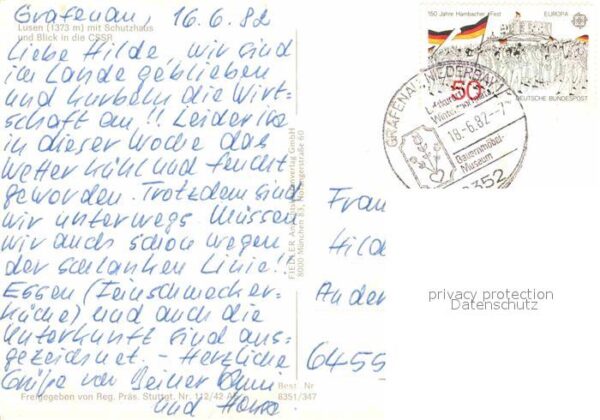 Grafenau, 16.6.82
Lusen (1373 m) mit Schutzhaus
und Blick in die CSSR
Liebe Hilde, wir sind
im Lande geblieben
und kurbeln die Wirt-
schaft an!! Leider ist
in dieser Woche das
Wetter kühl und feucht
geworden. Trotzdem sind
wir unterwegs. Müssen
wir auch schon wegen
der schlanken Linie!!
Essen (Feinschmecker-
küche) und auch die
Unterkunft sind aus-
gezeichnet. – Herzliche
Grüße von Deiner
und
Freigegeben von Reg. Präs. Stuttgt. Nr. 112/42
Best. Nr
8351/347
FIEDLER
8000 München 83,
150 Jahre Hambacher Fest
EUROPA
50
DEUTSCHE BUNDESPOST
GRAFENAU, NIEDERBAY
18.-6.82.--7
Bauernmöbel-
Museum
8352
Frau
Hild
Ander
6455
privacy protection
Datenschutz